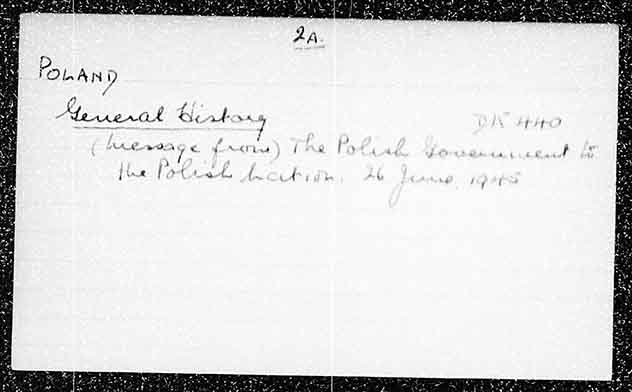 2A.
POLAND
General History DK 440
(Message from) The Polish Government to
the Polish Nation. 26 June, 1945